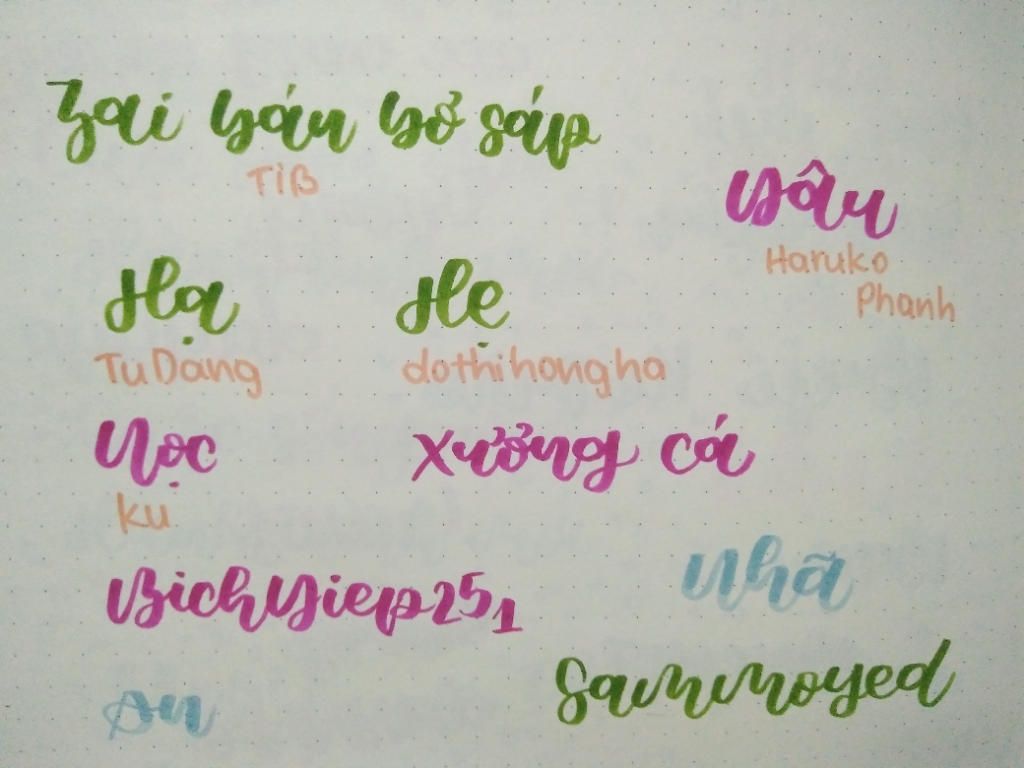 Zai bán bơ sáp
TiB
Dâu
Haruko
Phanh
Hạ
TuDang
Hẹ
dothihongha
Nọc
ku
Xưởng cá
BichDiep251
Nhã
An
Sammoyed